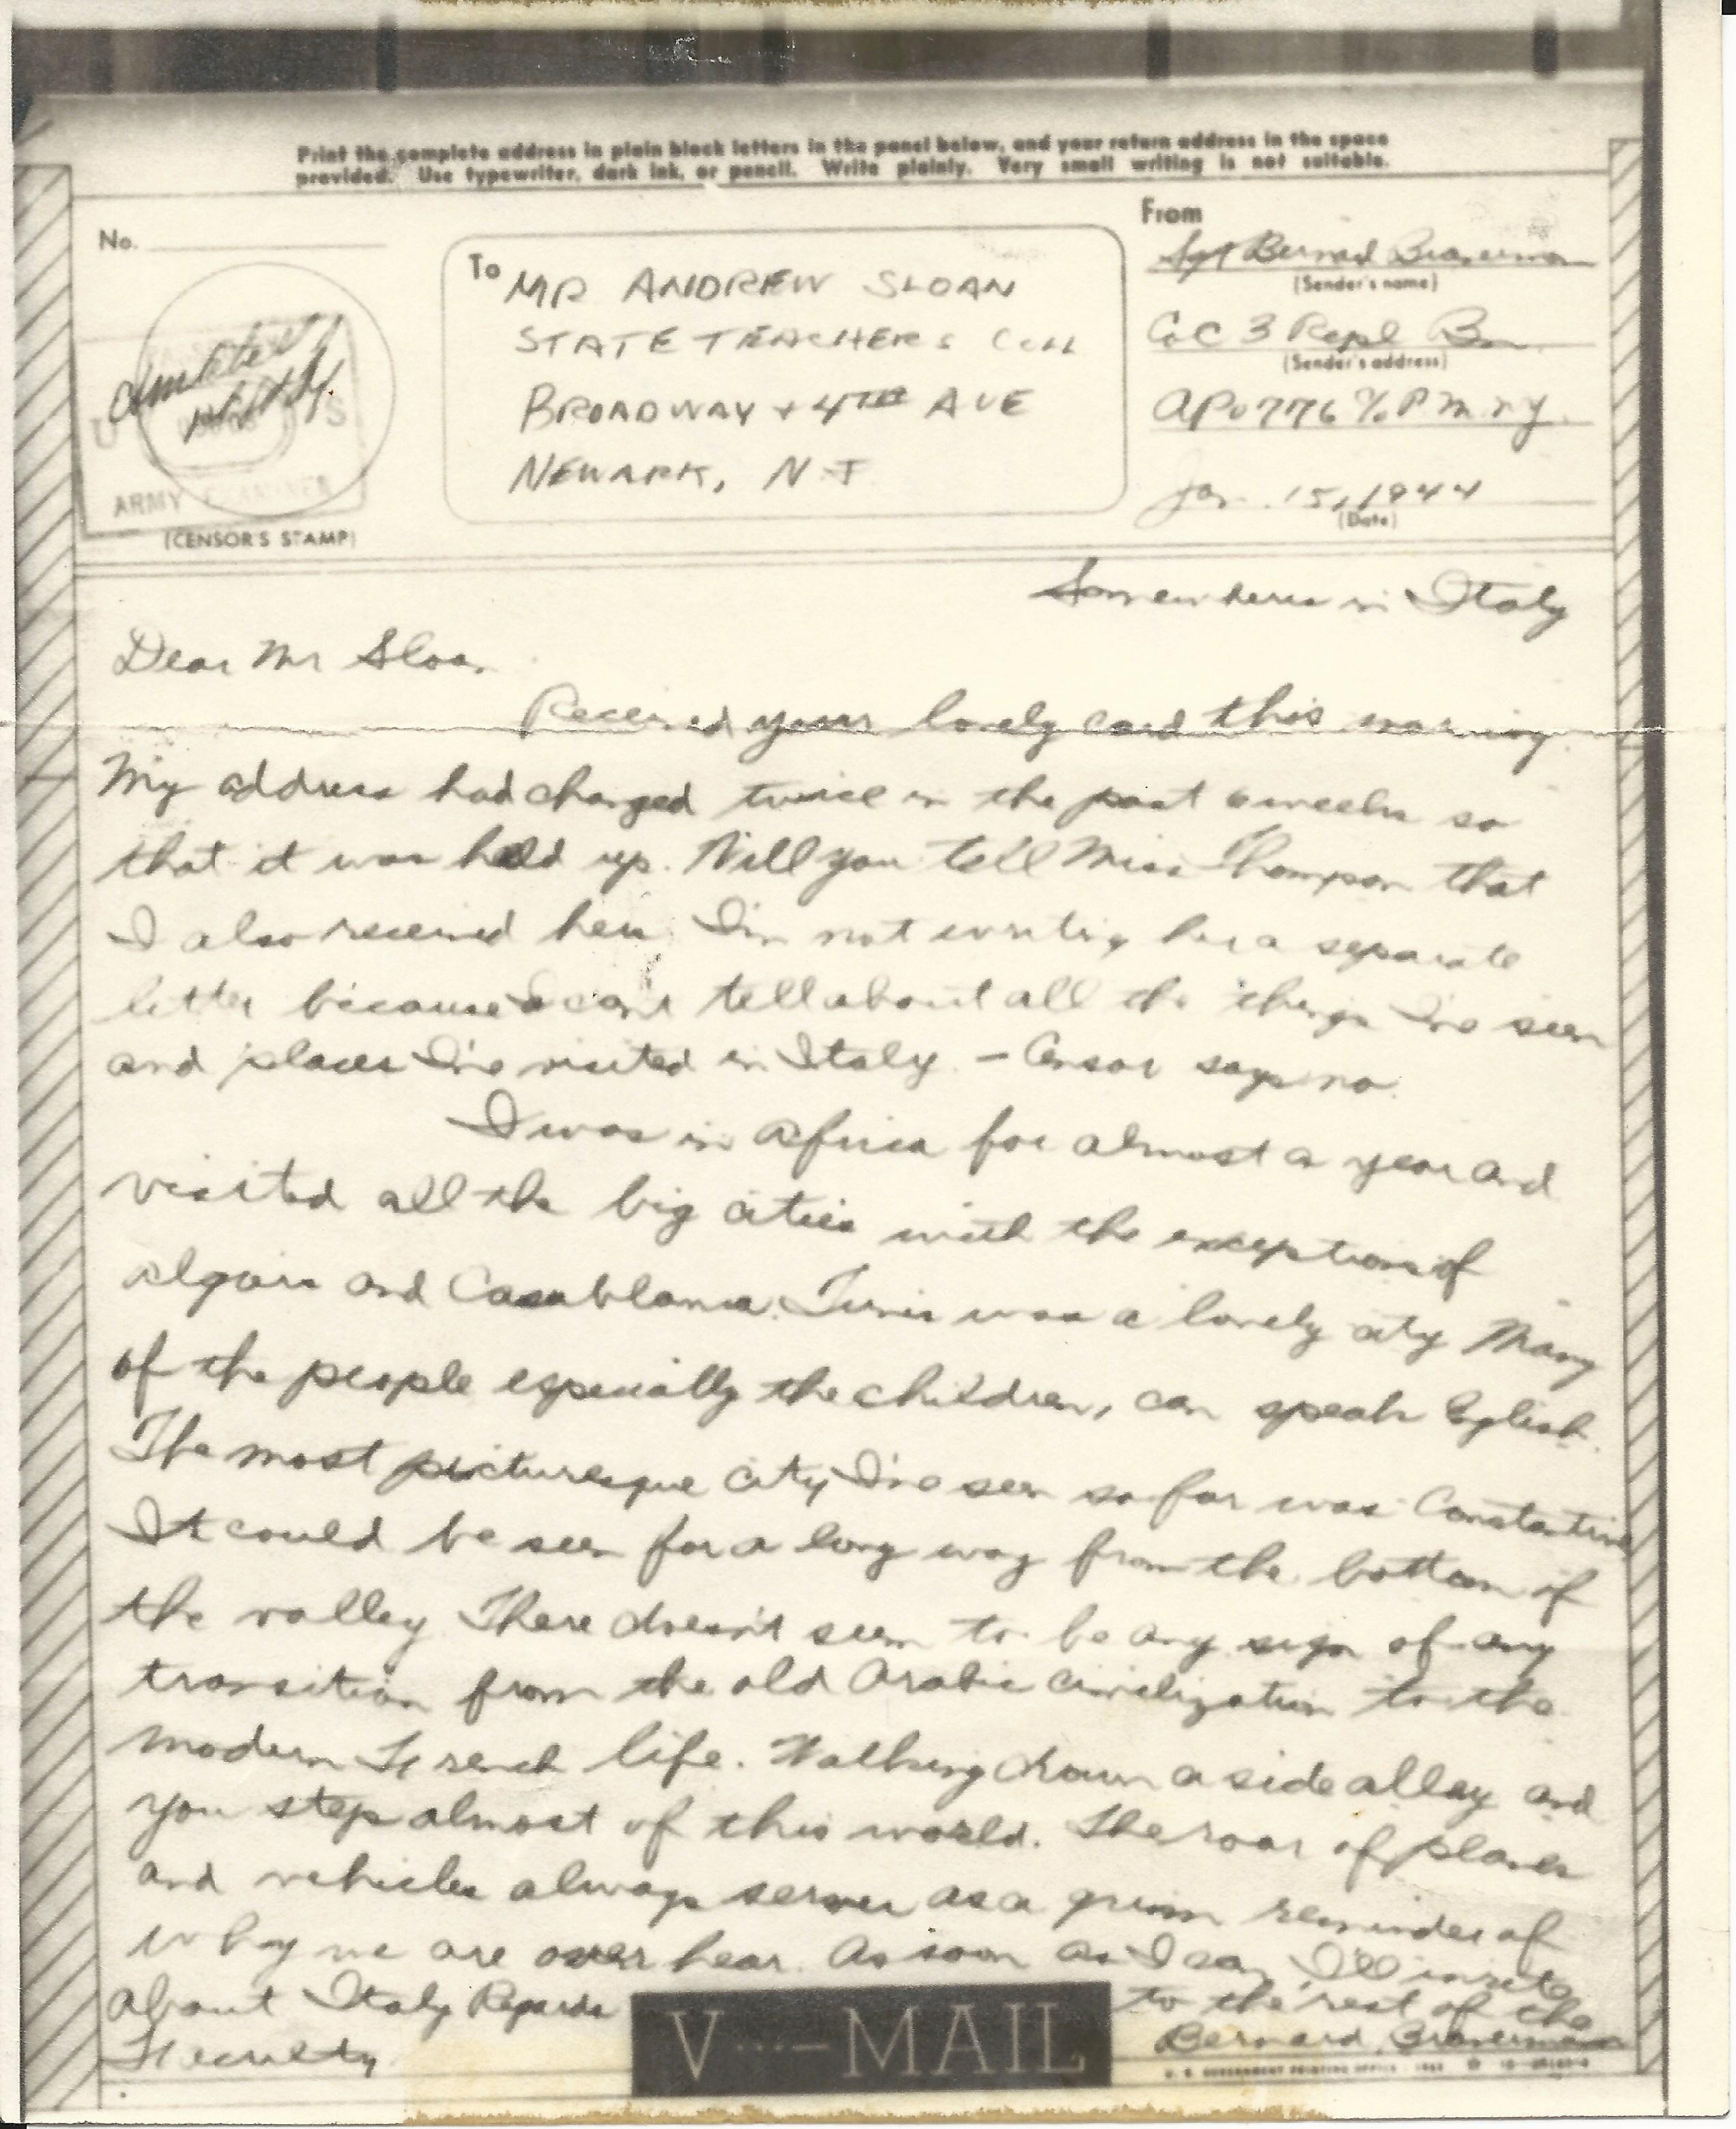 Print the complete address in plain block letters in the panel below, and your return address in the space
provided. Use typewriter, dark ink, or pencil. Write plainly. Very small writing is not suitable.
No.
To
MR ANDREW SLOAN
STATE TEACHERS COLL
BROADWAY + 4TH AVE
NEWARK, N J
U S
ARMY EXAMINER
(CENSOR'S STAMP)
From
Sgt Bernard Braverman
(Sender's name)
Co C 3 Repl Bn
(Sender's address)
APO 776 % P M N Y
Jan. 15, 1944
(Date)
Somewhere in Italy
Dear Mr Sloan
Received your lovely card this morning.
My address had changed twice in the past 6 weeks so
that it was held up. Will you tell Miss Thompson that
I also received hers. I'm not writing her a separate
letter because I can't tell about all the things I've seen
and places I've visited in Italy. – Censor says no.
I was in Africa for almost a year and
visited all the big cities with the exception of
Algiers and Casablanca. Tunis was a lovely city Many
of the people especially the children, can speak English.
The most picturesque city I've seen so far was Constantine
It could be seen for a long way from the bottom of
the valley There doesn't seem to be any sign of any
transition from the old Arabic civilization to the
modern French life. Walking down a side alley and
you step almost of this world. The roar of planes
and vehicles always serves as a grim reminder of
why we are over hear. As soon as I can I'll write
about Italy Regards to the rest of the
Faculty
Bernard Braverman
V···—MAIL
U. S. GOVERNMENT PRINTING OFFICE